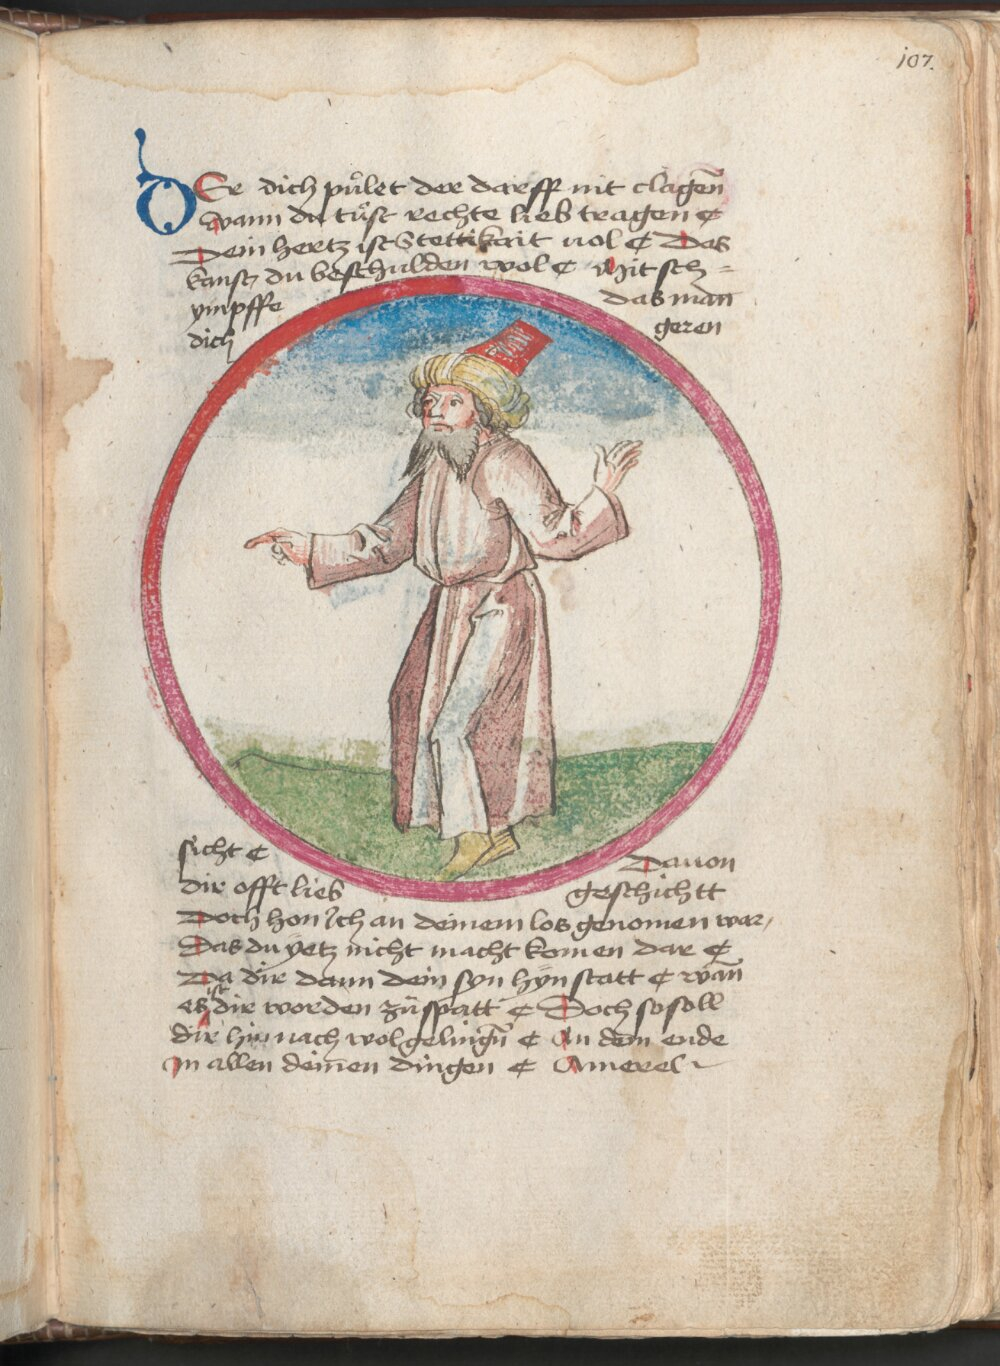 107.
DEr dich půlet der darff nit clagen̄
Wann du tůst rechte lieb tragen ¢
Dein hertz ist Stettikait uol ¢ Das
kanstz du beschulden wol ¢ Mit sch=
ympffe das man̄
dich geren
sicht ¢ Dauon
dir offt lieb geschichtt
Doch hon Ich an deinem los genomen war,
Das du yetz nicht macht komen dar ¢
Da dir dann dein syn hÿn statt ¢ wan̄
es ist dir worden zůspatt ¢ Doch so soll
dir hin nach wol gelingn̄ ¢ An dem ende
In allen deinen dingen ¢ Amerel